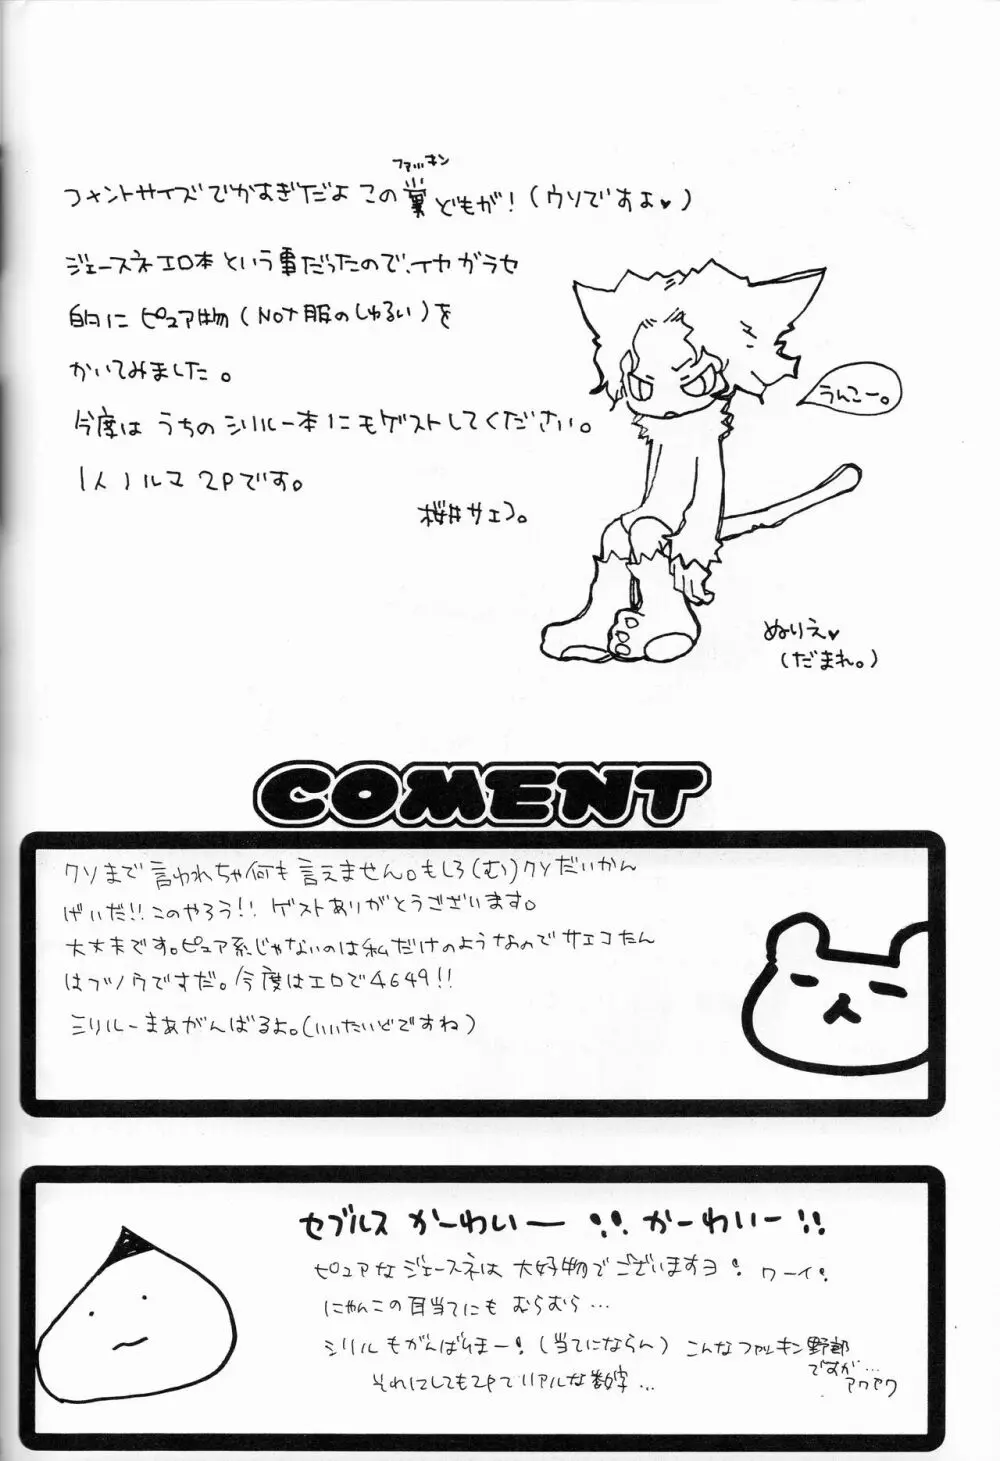 ファッキン
フォントサイズでかすぎだよ この糞どもが！(ウソですよ♥)
ジェースネエロ本という事だったので、イヤガラセ
的に ピュア物(Not 服のしゅるい)を
かいてみました。
今度は うちの シリルー本にもゲストしてください。
1人ノルマ 2Pです。
桜井サエコ。
うんこー。
ぬりえ♥
(だまれ。)
COMENT
クソまで言われちゃ何も言えません。もしろ(む)クソだいかん
げいだ!!このやろう!! ゲストありがとうございます。
大丈夫です。ピュア系じゃないのは私だけのようなのでサエコたん
はブノウですだ。今度はエロで4649!!
シリルーまあがんばるよ。(いいたいどですね)
セブルス かーわいー !! かーわいー !!
ピュアなジェースネは 大好物でございますヨ! ワーイ!
にゃんこの耳当てにも むらむら…
シリルもがんばりまー!(当てにならん) こんなファッキン野郎
ですが…
アワアワ
それにしても2Pてリアルな数字…